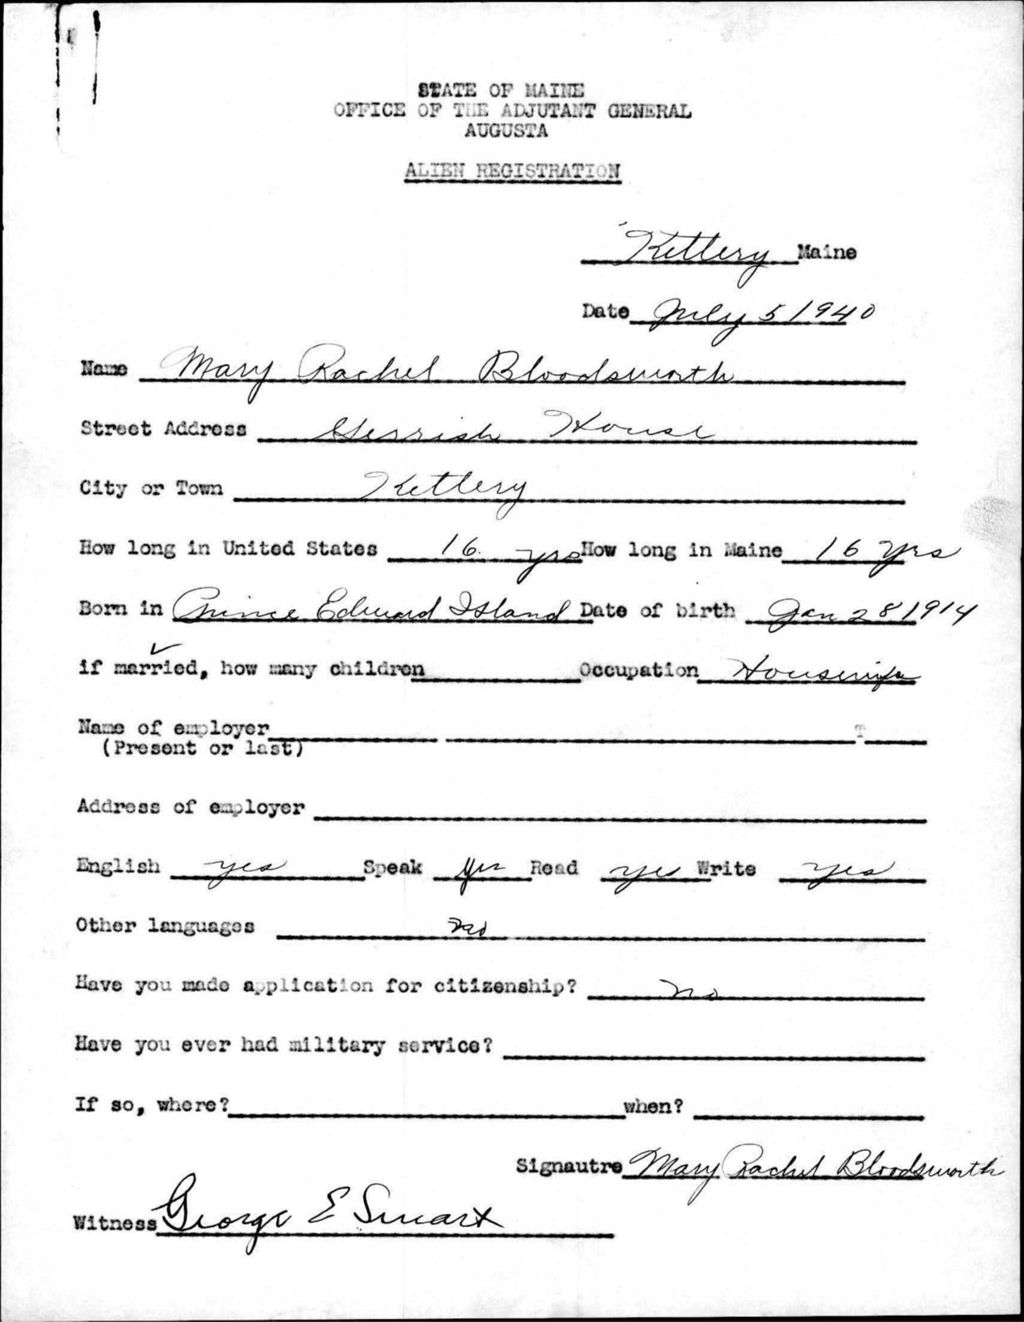 STATE OF MAINE
OFFICE OF THE ADJUTANT GENERAL
AUGUSTA
ALIEN REGISTRATION
Kittery Maine
Date July 5 1940
Name Mary Rachel Bloodsworth
Street Address Gerrish House
City or Town Kittery
How long in United States 16 yrs How long in Maine 16 yrs
Born in Prince Edward Island Date of birth Jan 28 1914
if married, how many children Occupation Housewife
Name of employer
(Present or last)
Address of employer
English yes Speak yes Read yes Write yes
Other languages no
Have you made application for citizenship? no
Have you ever had military service?
If so, where? when?
Signautre Mary Rachel Bloodsworth
Witness George E Smart